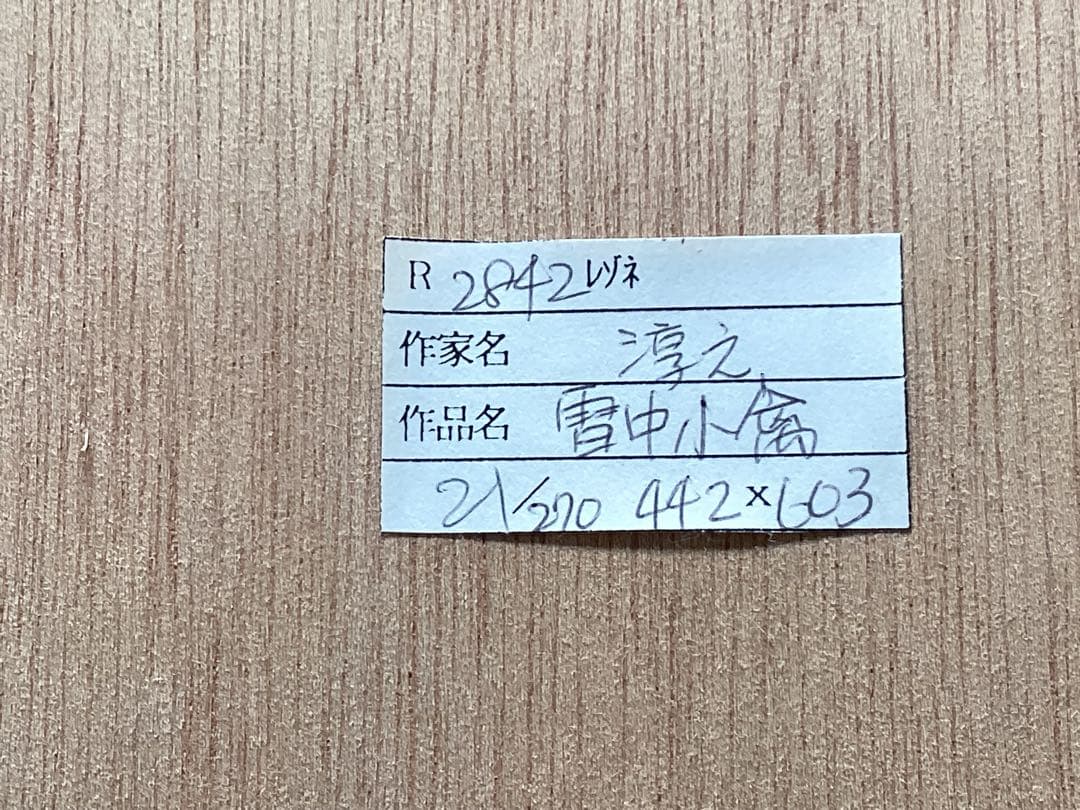 R 2842 レゾネ
作家名 淳之
作品名 雪中小禽
21/270 442×603